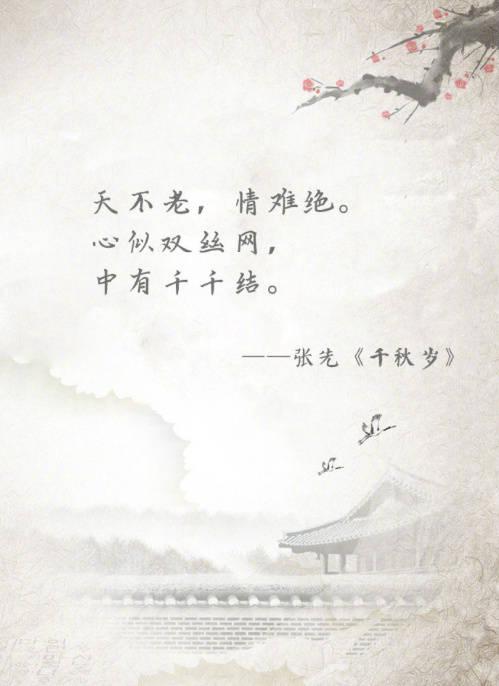 天不老，情难绝。
心似双丝网，
中有千千结。
——张先《千秋岁》